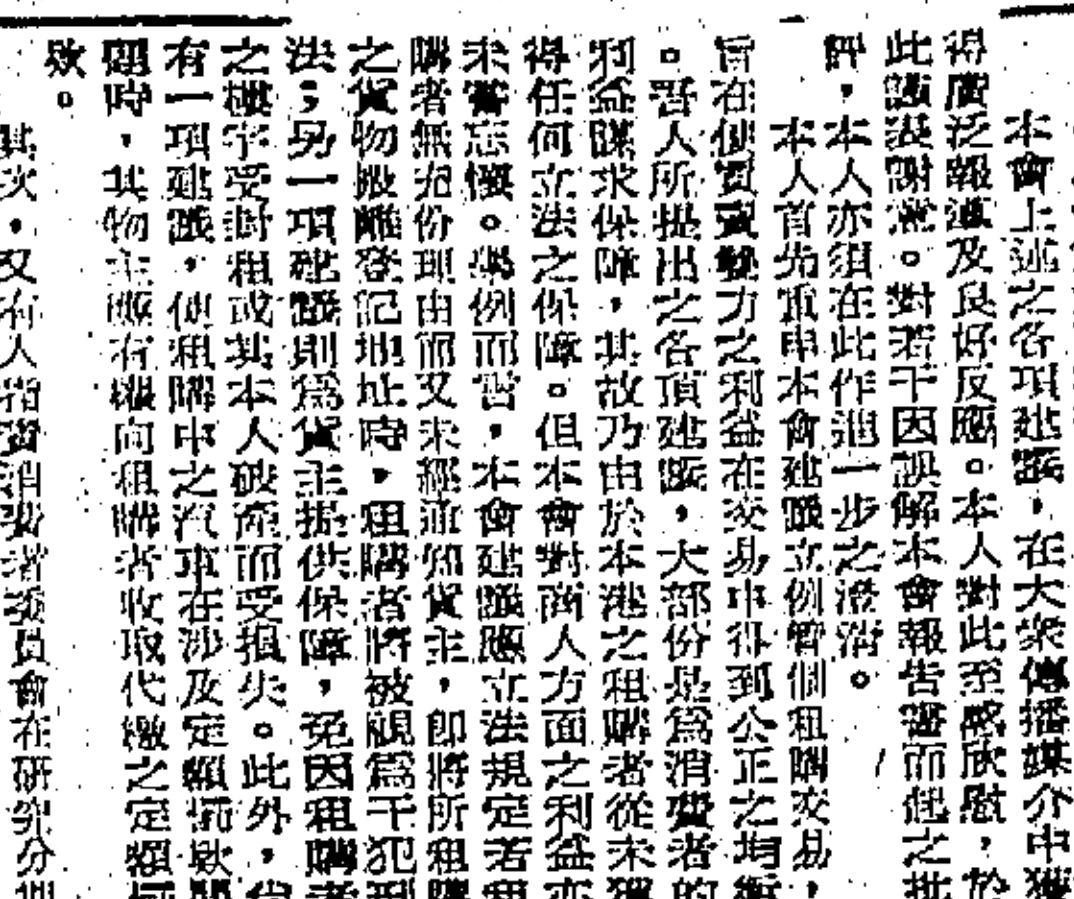 本會上述之各項建議，在大衆傳播媒介中獲
得廣泛報導及良好反應。本人對此至感欣慰，於
此謹表謝意。對若干因誤解本會報告書而起之批
評，本人亦須在此作進一步之澄清。
本人首先重申本會建議立例管制租購交易，
旨在使買賣雙方之利益在交易中得到公正之均衡
。吾人所提出之各項建議，大部份是爲消費者的
利益謀求保障，其故乃由於本港之租購者從未獲
得任何立法之保障。但本會對商人方面之利益亦
未嘗忘懷。舉例而言，本會建議應立法規定若租
購者無充份理由而又未經通知貨主，即將所租購
之貨物搬離登記地址時，租購者將被視爲干犯刑
法；另一項建議則爲貨主提供保障，免因租購者
之樓宇受封租或其本人破產而受損失。此外，
有一項建議，使租購中之汽車在涉及定額
題時，其物主應有權向租購者收取代繳之定額
欵。
其次，又有人指責消費者委員會在研究分期